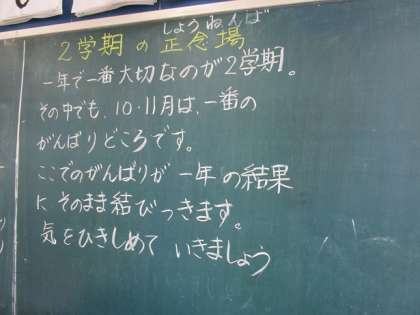 しょうねんば
2学期の正念場
一年で一番大切なのが2学期。
その中でも、10・11月は、一番の
がんばりどころです。
ここでのがんばりが一年の結果
に そのまま結びつきます。
気をひきしめて いきましょう